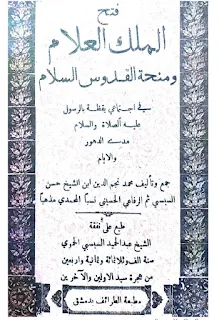 فتح
الملك العلام
ومنحة القدوس السلام
في اجتماعي يقظة بالرسول
عليه الصلاة والسلام
مدى الدهور
والايام
جمع وتأليف محمد نجم الدين ابن الشيخ حسن
السبسبي ثم الرفاعي الحسيني نسبًا المحمدي مذهبًا
طبع على نفقة
الشيخ عبد الحميد السبسبي الحموي
سنة الف وثلاثمائة وثمانية واربعين
من هجرة سيد الاولين والآخرين
مطبعة الطرائف بدمشق